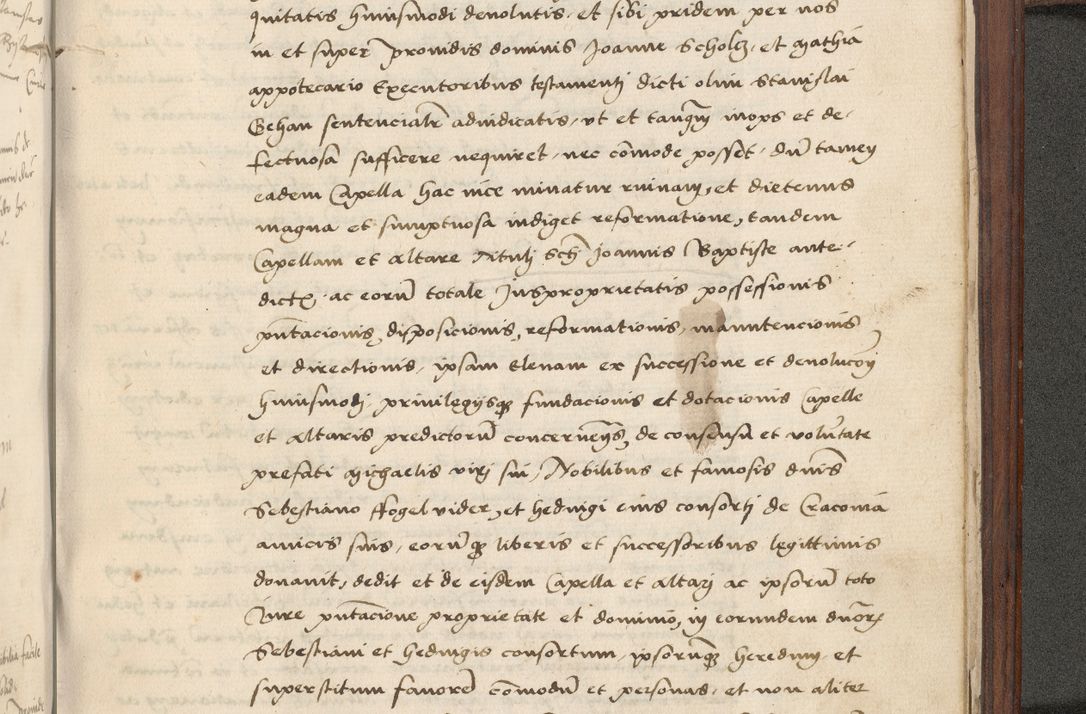 quitatis huiusmodi devolutis, et sibi pridem per nos
in et super providis dominis Joanne Scholcz, et Mathia
appotecario Executoribus testamenti dicti olim Stanislai
Gehan sentencialr̄ adiudicatis, ut et tanq̄m inops et de-
fectuosa sufficere nequiret, nec cōmode posset, dū tamen
eadem Capella hac vice minatur ruinam, et dietenus
magna et sumptuosa indiget reformatione, tandem
Capellam et altare tituli Scti Joannis Baptiste ante-
dictę, ac eorū totale Jusproprietatis possessionis
pñtacionis, disposicionis, reformationis, manutencionis
et directionis, ipsam Elenam ex successione et devolucōn
huiusmodi, privilegijsq; fundacionis et dotacionis Capelle
et altaris predictorū concernēns, de consensu et volūtate
prefati Michaelis viri sui, Nobilibus et famosis dñis
Sebestiano ffogelvider, et hedvigi eius consorti de Cracovia
amicis suis, eorūq; liberis et successoribus legittimis
donavit, dedit et de eisdem Capella et altari ac ipsorū toto
Jure pñtacione proprietate et dominio, in eorundem dñorz
Sebestiani et hedvigis consortum, ipsorūq; heredum, et
superstitum favorē cōmodū et personas, et non aliter